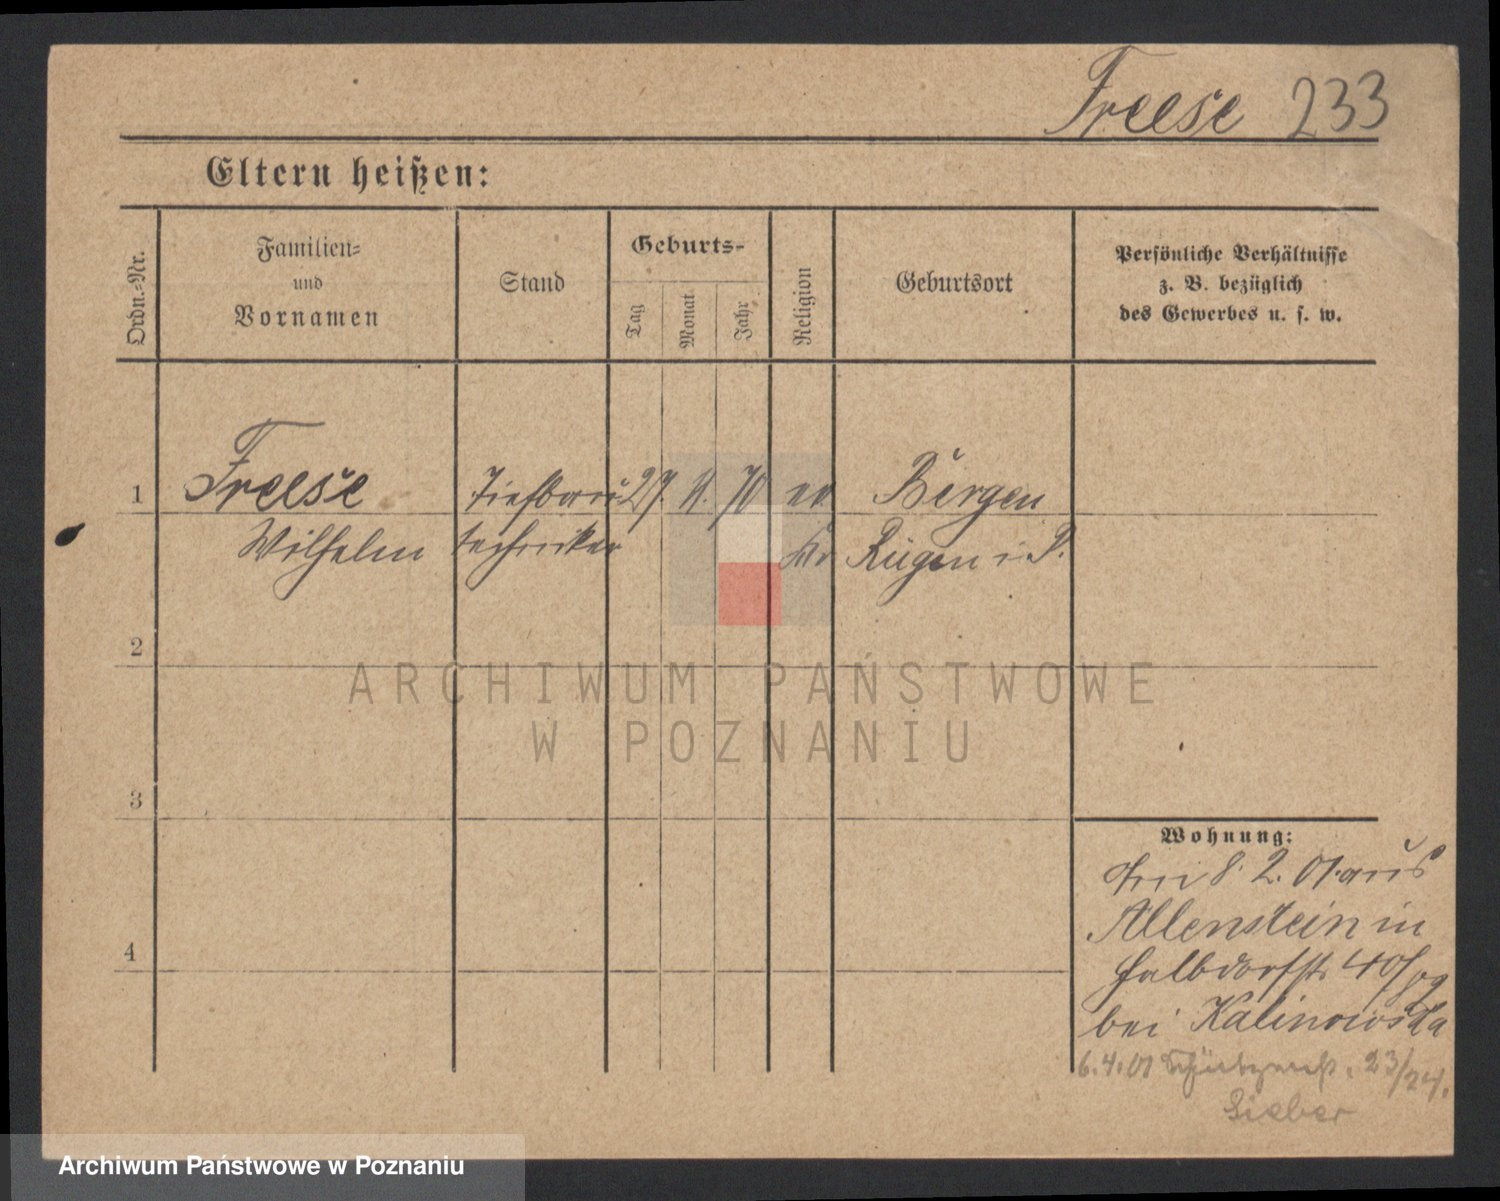 Freese 233
Eltern heißen:
Ordn.-Nr.
Familien-
und
Vornamen
Stand
Geburts-
Tag
Monat
Jahr
Religion
Geburtsort
Persönliche Verhältnisse
z. B. bezüglich
des Gewerbes u. s. w.
1 Freese Tiefbau 27. 11. 70 ev Bergen
Wilhelm techniker Kr Rügen i. P.
2
ARCHIWUM PAŃSTWOWE
W POZNANIU
3
Wohnung:
8. 2. 01. aus
Allenstein in
Halbdorfstr 40/
bei Kalinowska
4
6.4.01 23/24.
Sieber
Archiwum Państwowe w Poznaniu